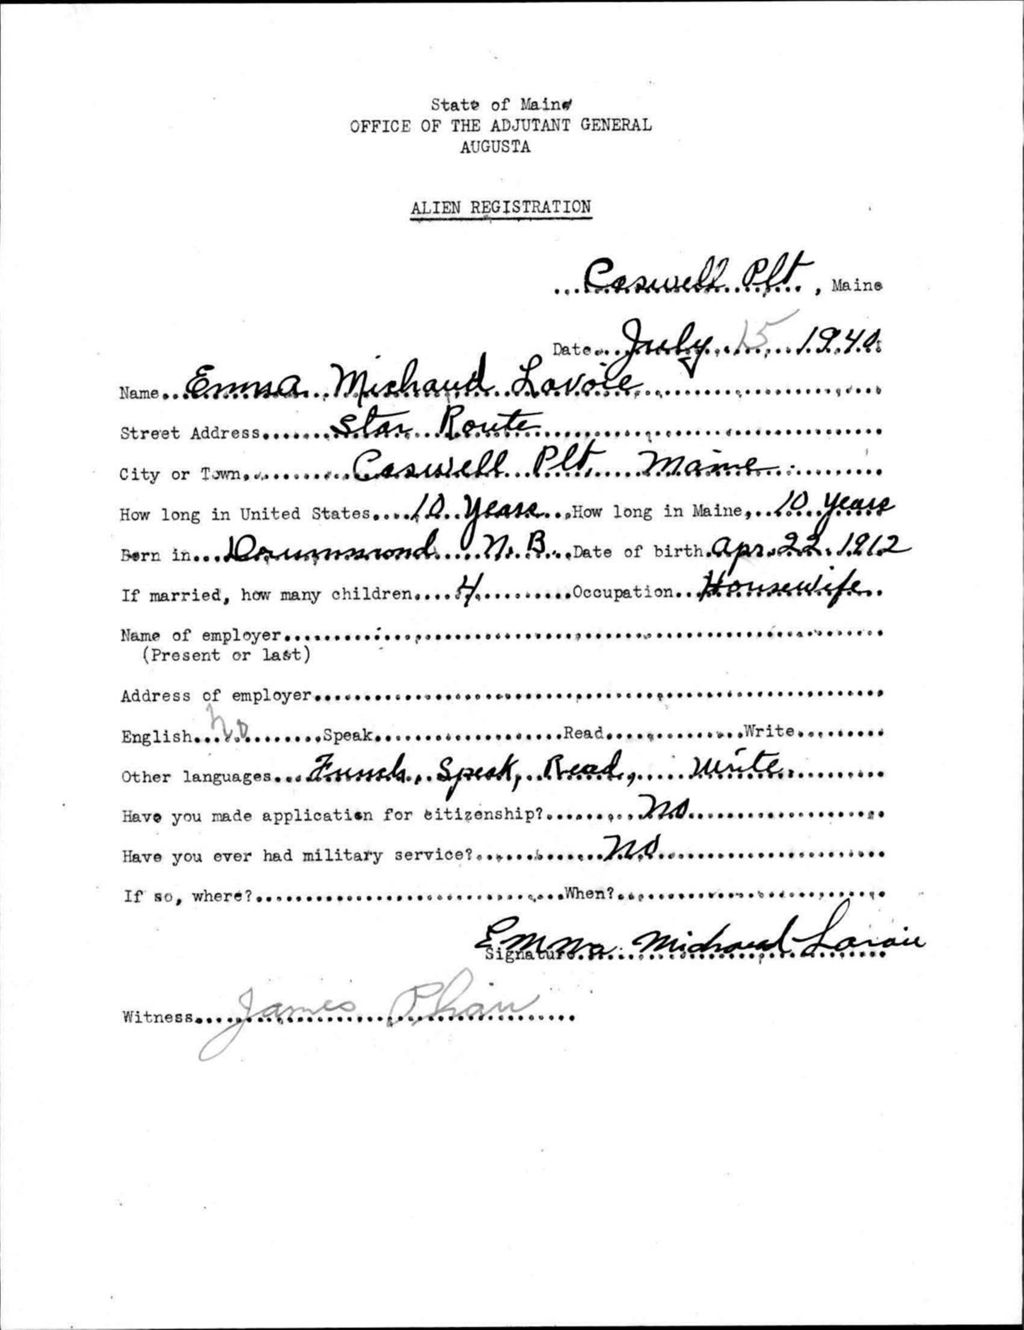 State of Maine
OFFICE OF THE ADJUTANT GENERAL
AUGUSTA
ALIEN REGISTRATION
Caswell Plt, Maine
Date July 15 1940
Name Emma Michaud Lavoie
Street Address Star Route
City or Town Caswell Plt, Maine
How long in United States 10 Years How long in Maine, 10 Years
Born in Drummond N.B. Date of birth Apr. 22, 1912
If married, how many children 4 Occupation Housewife
Name of employer
(Present or last)
Address of employer
English No Speak Read Write
Other languages French, Speak, Read, Write
Have you made application for citizenship? No
Have you ever had military service? No
If so, where? When?
Emma Michaud Lavoie
Signature
Witness James